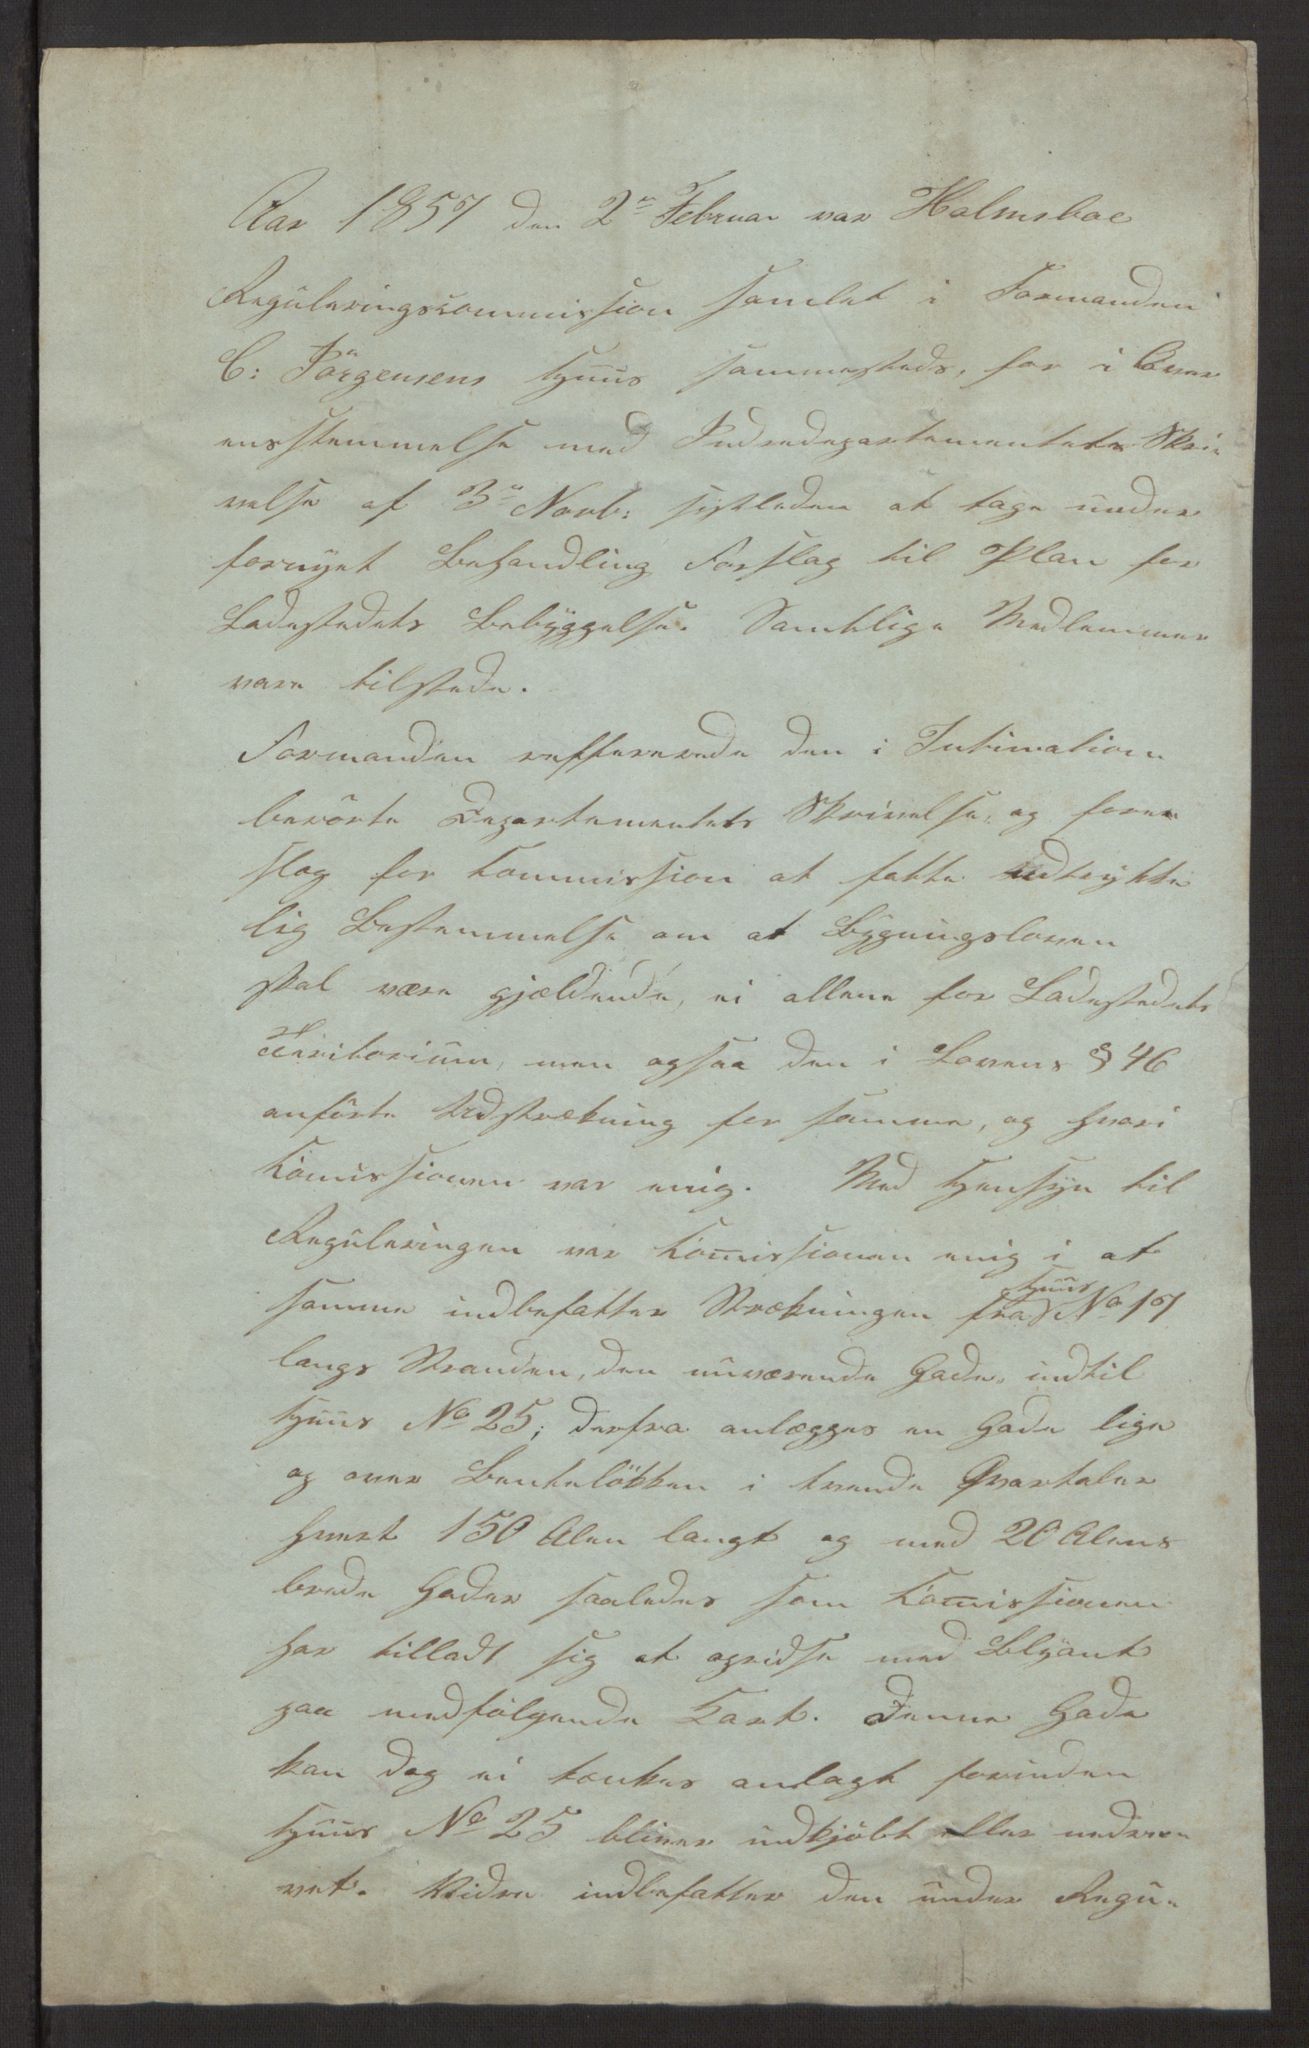 Aar 1857 den 2n Februar var Holmsboe
Reguleringscommission samlet i Formanden
C: Jörgensens Huus sammesteds, for i Over
ensstemmelse med Indredepartementets Skri
velse af 3n Novb: sistleden at tage under
fornyet Behandling Forslag til Plan for
Ladestedets Bebyggelse. Samtlige Medlemmer
vare tilstede.
Formanden reffererede den i Intimation
berörte Departementets Skrivelse, og fore
slog for Commission at fatte udtrykke
lig Bestemmelse om at Bygningsloven
skal være gjældende, ei allene for Ladestedets
Teritorium, men ogsaa den i Lovens § 46
anförte Udstrækning for samme, og hvori
Comissionen var enig. Med Hensyn til
Reguleringen var Comissionen enig i at
samme indbefatter Strækningen fra Huus No 17
langs Stranden, den nuværende Gade, indtil
Huus No 25; derfra anlægges en Gade lige
og over Bentelökken i tvende Qvartaler
hvert 150 Alen langt og med 20 Alens
brede Gader saaledes som Comissionen
har tilladt sig at opridse med Blyant
paa medfölgende Kart. Denne Gade
kan dog ei tænkes anlagt forinden
Huus No 25 bliver indkjöbt eller nedre
vet. Videre indbefatter den under Regu-